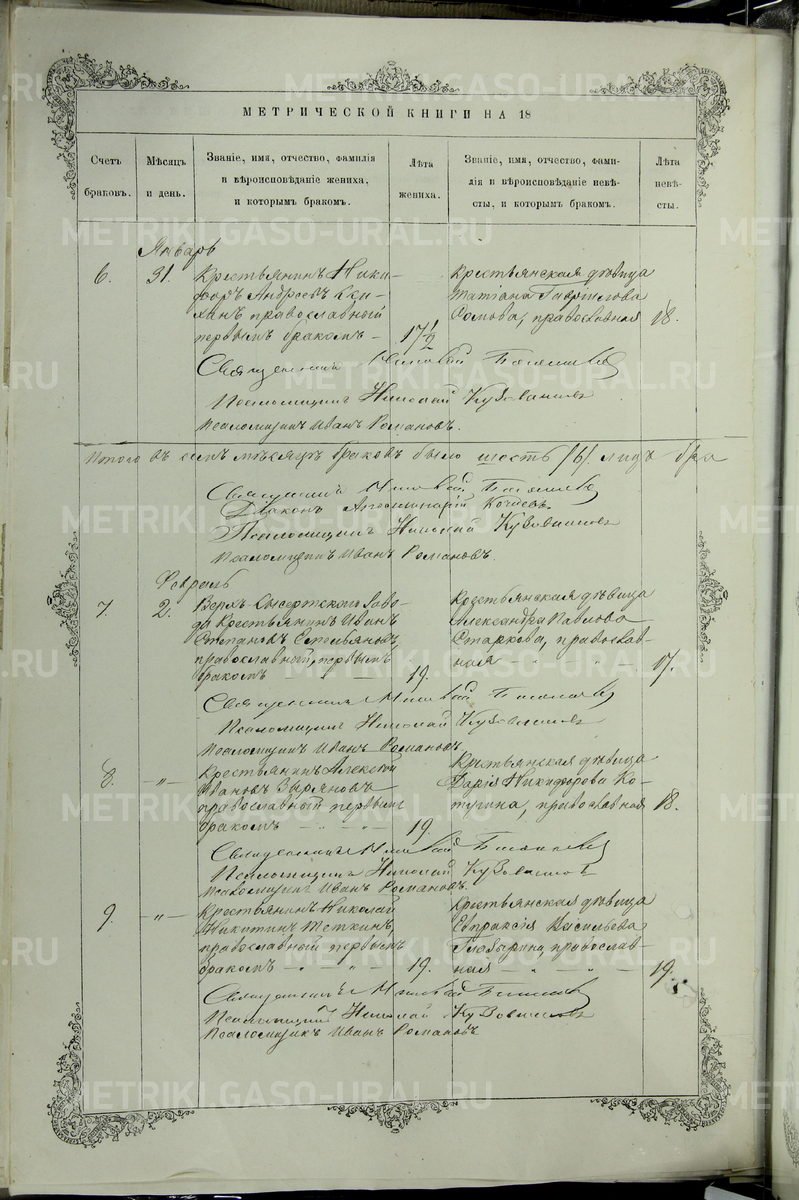 МЕТРИЧЕСКОЙ КНИГИ НА 18
Счетъ браковъ.
Мѣсяцъ и день.
Званіе, имя, отчество, фамилія
и вѣроисповѣданіе жениха,
и которымъ бракомъ.
Лѣта жениха.
Званіе, имя, отчество, фами-
лія и вѣроисповѣданіе невѣ-
сты, и которымъ бракомъ.
Лѣта
невѣ-
сты.
Январь
6. 31. Крестьянинъ Ники-
форъ Андреевъ
православный
первымъ бракомъ – 17½
Крестьянская дѣвица
Татіана Гаврилова
Сомова, православная 18.
Священникъ
Псаломщикъ Николай
Псаломщикъ Иванъ Романовъ.
Итого въ семъ мѣсяцѣ браковъ было шесть (6) лицъ бра
Священникъ
Діаконъ
Псаломщикъ Николай
Псаломщикъ Иванъ Романовъ.
Февраль
7. 2. Верхъ-Сысертскаго Заво-
да Крестьянинъ Иванъ
Степановъ
православный, первымъ
бракомъ – 19.
Крестьянская дѣвица
Александра Павлова
Старкова, православ-
ная – „ – „ – 17.
Священникъ
Псаломщикъ Николай
Псаломщикъ Иванъ Романовъ.
8. – „ – Крестьянинъ Алексѣй
Ивановъ Зыряновъ
православный первымъ
бракомъ – „ – „ – 19.
Крестьянская дѣвица
Дарія Никифорова Ко-
тугина, православная 18.
Священникъ
Псаломщикъ Николай
Псаломщикъ Иванъ Романовъ.
9. – „ – Крестьянинъ Николай
Никитинъ Теткинъ,
православный первымъ
бракомъ – „ – „ – 19.
Крестьянская дѣвица
Евпраксія Васильева
православ-
ная – „ – „ – 19.
Священникъ
Псаломщикъ Николай
Псаломщикъ Иванъ Романовъ
METRIKI.GASO-URAL.RU